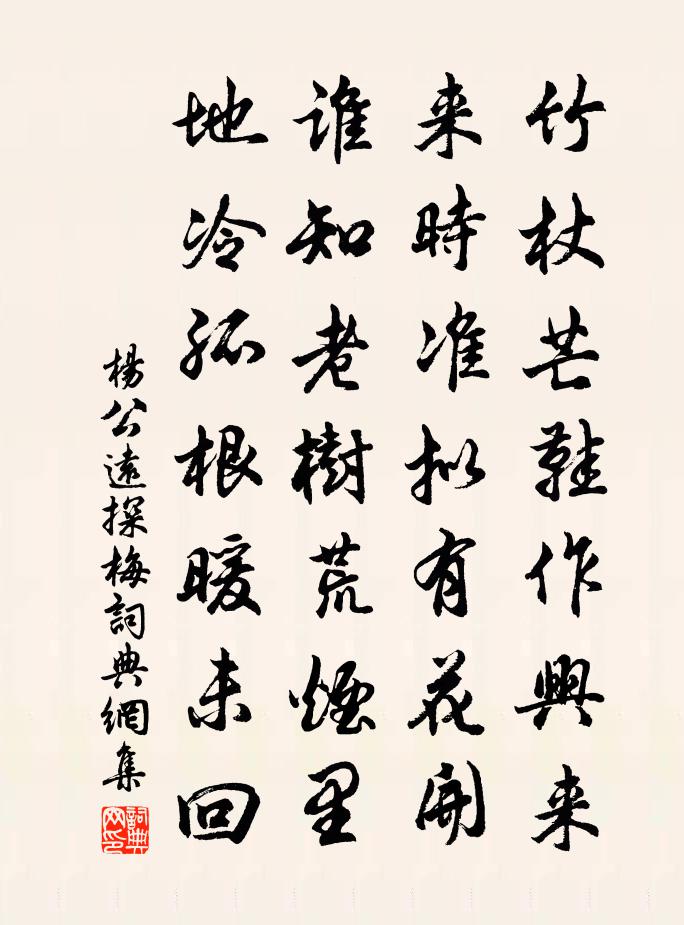 竹杖芒鞋作興来
来時准拟有花開
誰知老樹荒煙里
地冷孤根暖未回
楊公遠探梅詞典網集
詞典網印